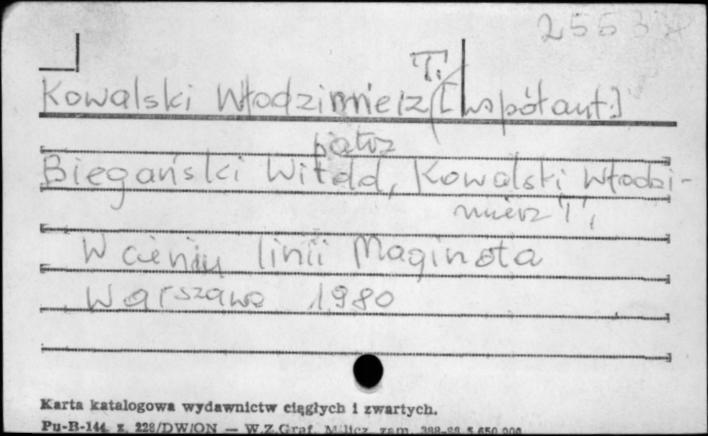 255
T.
Kowalski Włodzimierz [współaut.]
patrz
Biegański Witold, Kowalski Włodzi-
mierz T.,
W cieniu linii Maginota
Warszawa 1980
Karta katalogowa wydawnictw ciągłych i zwartych.
Pu-B-144, z. 228/DW/ON — W.Z.Graf. Milicz zam.